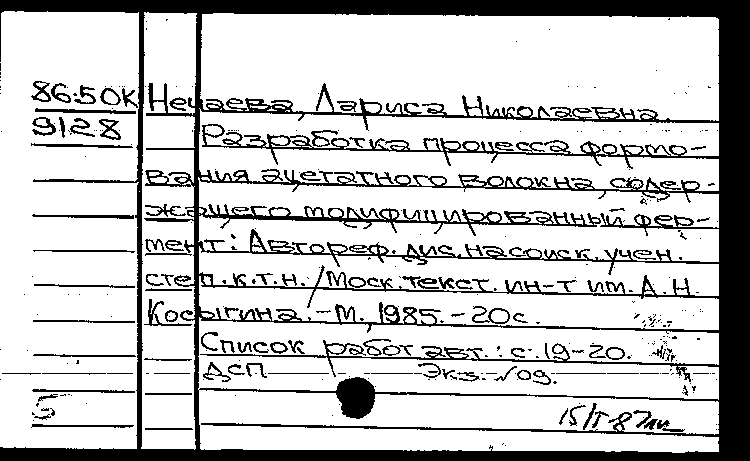 86:5ОК Нечаева, Лариса Николаевна.
9128 Разработка процесса формо-
вания ацетатного волокна, содер-
жащего модифицированный фер-
мент: Автореф. дис. на соиск. учен.
степ. к.т.н. / Моск. текст. ин-т им. А.Н.
Косыгина. - М., 1985. - 20с.
Список работ авт.: с. 19-20.
ДСП Экз. №09.
5 15/I-87